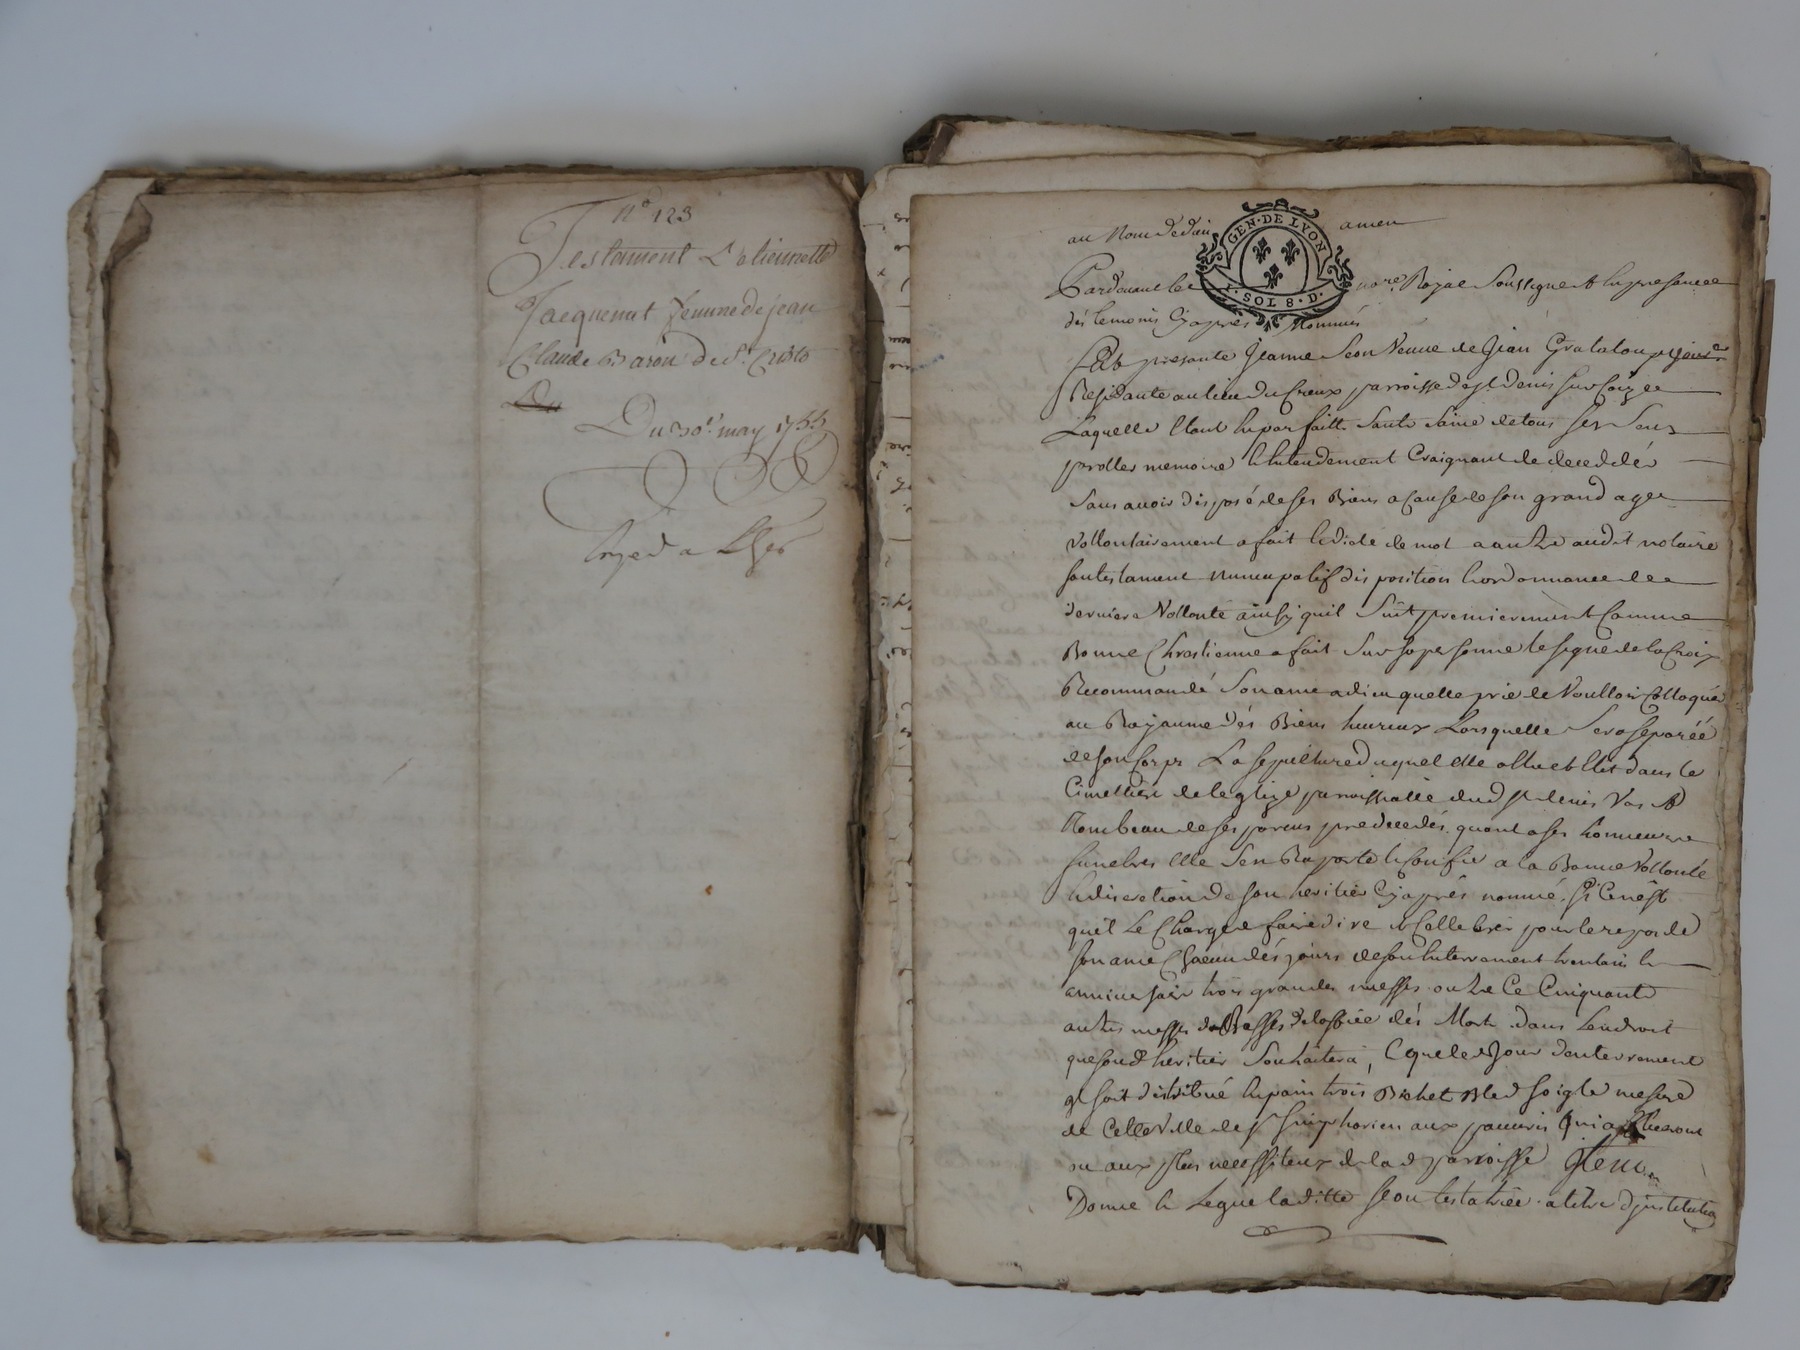 N° 123
Testament D'etiennette
Jacquemat femme de jean
Claude Baron de St. Cristo
Du
Du 30e. may 1755
au Nom de dieu amen
GEN·DE LYON
1·SOL 8·D·
Pardevant le notre. Royal Soussigné & En presance
dès temoins Cyaprès Nommés
fut presante Jeanne Seon Veuve de Jean Grataloup
Residante au lieu du Creux parroisse de st denis sur Coize
Laquelle Etant En parfaitte Santé Saine de tous ses Sens
parolles memoire & Entendement Craignant de decedder
Sans avoir disposé de ses Biens a Cause de son grand age
Vollontairement a fait & dicté de mot a autre audit notaire
son testament nuncupatif disposition & ordonnance de
derniere Vollonté ainsy quil Suit premierement Comme
Bonne Chrestienne a fait Sur sa personne le signe de la Croix
Recommandé Son ame a dieu quelle prie de Voulloir Colloquer
au Royaume dés Biens heureux Lorsquelle Sera separéé
de son Corps La sepulture duquel Elle a Elue & Elit dans le
Cimettiere de leglize parroissialle dud st denis Vas &
Tombeau de ses parens predecedés. quant a ses honneurs
funebres Elle Sen Raporte & Confie a la Bonne Vollonté
& discretion de son heritier Cyaprés nommé. Si Cenest
quil Le Charge de faire dire & Cellebrer pour le repos de
son ame Chacun dés jours de son Enterrement trentain &
anniversaire trois grandes messes. outre Ce Cinquante
autres messes Basses de loffice dés Morts dans Lendroit
que sond heritier Souhaitera, & que led Jour denterrement
Il soit distribué En pain trois Bichet Bled soigle mesure
de Celle Ville de st simphorien aux pauvres qui assisteront
ou aux plus necessiteux de lad parroisse Item
Donne & Legue laditte Seon testatrice. a titre dinstitution